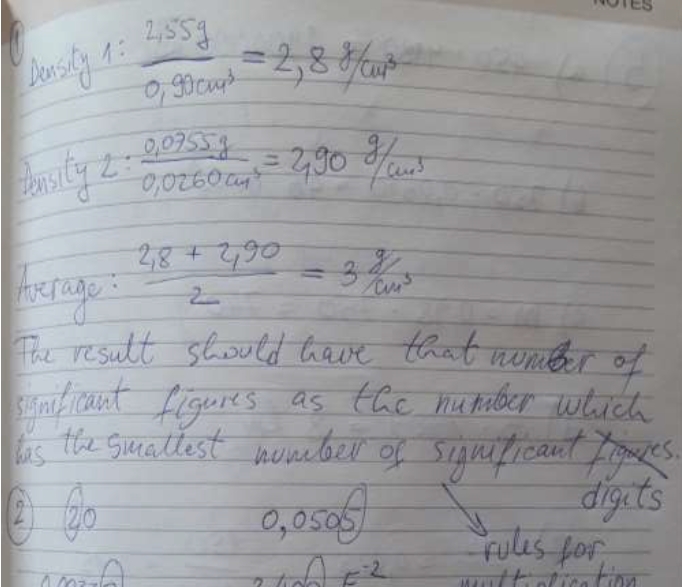 NOTES
① Density 1: 2,55g / 0,90cm³ = 2,8 g/cm³
Density 2: 0,0755g / 0,0260cm³ = 2,90 g/cm³
Average: 2,8 + 2,90 / 2 = 3 g/cm³
The result should have that number of
significant figures as the number which
has the smallest number of significant figures.
digits
② 20 0,0505
rules for
multiplication